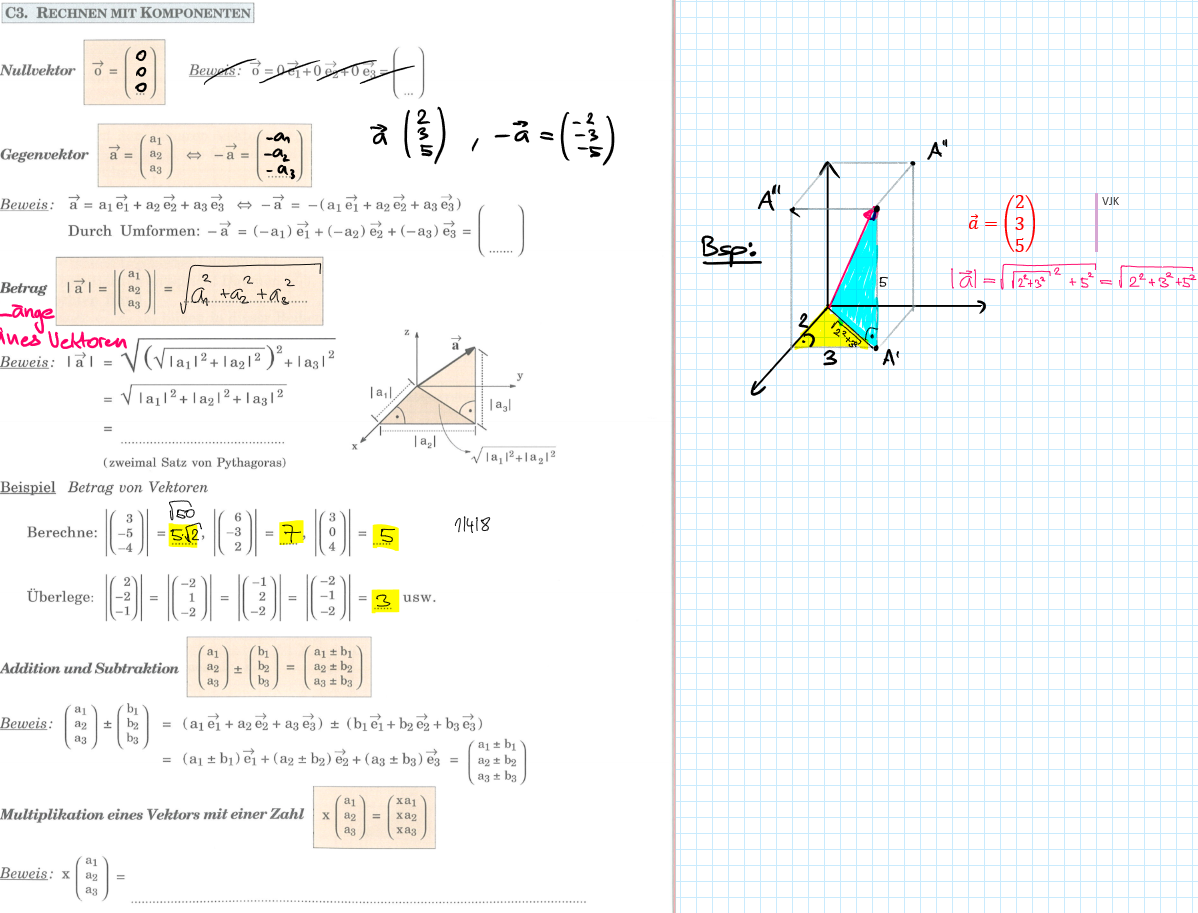 C3. RECHNEN MIT KOMPONENTEN
Nullvektor o⃗ = (0 0 0) Beweis: o⃗ = 0 e⃗₁ + 0 e⃗₂ + 0 e⃗₃ = ( ... )
a⃗ (2 3 5), −a⃗ = (−2 −3 −5)
Gegenvektor a⃗ = (a₁ a₂ a₃) ⇔ −a⃗ = (−a₁ −a₂ −a₃)
Beweis: a⃗ = a₁ e⃗₁ + a₂ e⃗₂ + a₃ e⃗₃ ⇔ −a⃗ = −(a₁ e⃗₁ + a₂ e⃗₂ + a₃ e⃗₃)
Durch Umformen: −a⃗ = (−a₁) e⃗₁ + (−a₂) e⃗₂ + (−a₃) e⃗₃ = ( ....... )
Betrag |a⃗| = |(a₁ a₂ a₃)| = √(a₁² + a₂² + a₃²)
änge
ines Vektoren
Beweis: |a⃗| = √((√(|a₁|² + |a₂|²))² + |a₃|²)
= √(|a₁|² + |a₂|² + |a₃|²)
= ...............................................
(zweimal Satz von Pythagoras)
z
a⃗
y
|a₁|
|a₃|
|a₂|
x
√(|a₁|² + |a₂|²)
Beispiel Betrag von Vektoren
√50
Berechne: |(3 −5 −4)| = 5√2, |(6 −3 2)| = 7, |(3 0 4)| = 5
1/4/8
Überlege: |(2 −2 −1)| = |(−2 1 −2)| = |(−1 2 −2)| = |(−2 −1 −2)| = 3 usw.
Addition und Subtraktion (a₁ a₂ a₃) ± (b₁ b₂ b₃) = (a₁ ± b₁ a₂ ± b₂ a₃ ± b₃)
Beweis: (a₁ a₂ a₃) ± (b₁ b₂ b₃) = (a₁ e⃗₁ + a₂ e⃗₂ + a₃ e⃗₃) ± (b₁ e⃗₁ + b₂ e⃗₂ + b₃ e⃗₃)
= (a₁ ± b₁) e⃗₁ + (a₂ ± b₂) e⃗₂ + (a₃ ± b₃) e⃗₃ = (a₁ ± b₁ a₂ ± b₂ a₃ ± b₃)
Multiplikation eines Vektors mit einer Zahl x (a₁ a₂ a₃) = (xa₁ xa₂ xa₃)
Beweis: x (a₁ a₂ a₃) = ...............................................
Bsp:
A''
A'''
5
2
√(2²+3²)
3
A'
a⃗ = (2 3 5)
VJK
|a⃗| = √(√(2²+3²)² + 5²) = √(2²+3²+5²)